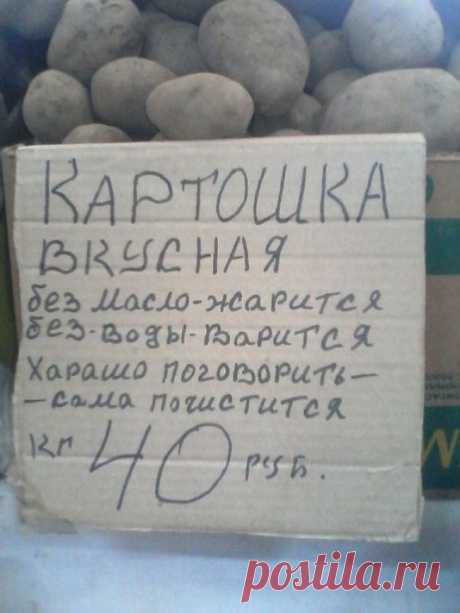 КАРТОШКА
ВКУСНАЯ
без масло-жарится
без-воды-варится
Харашо поговорить-
-сама почистится
кг 40 руб.
postila.ru